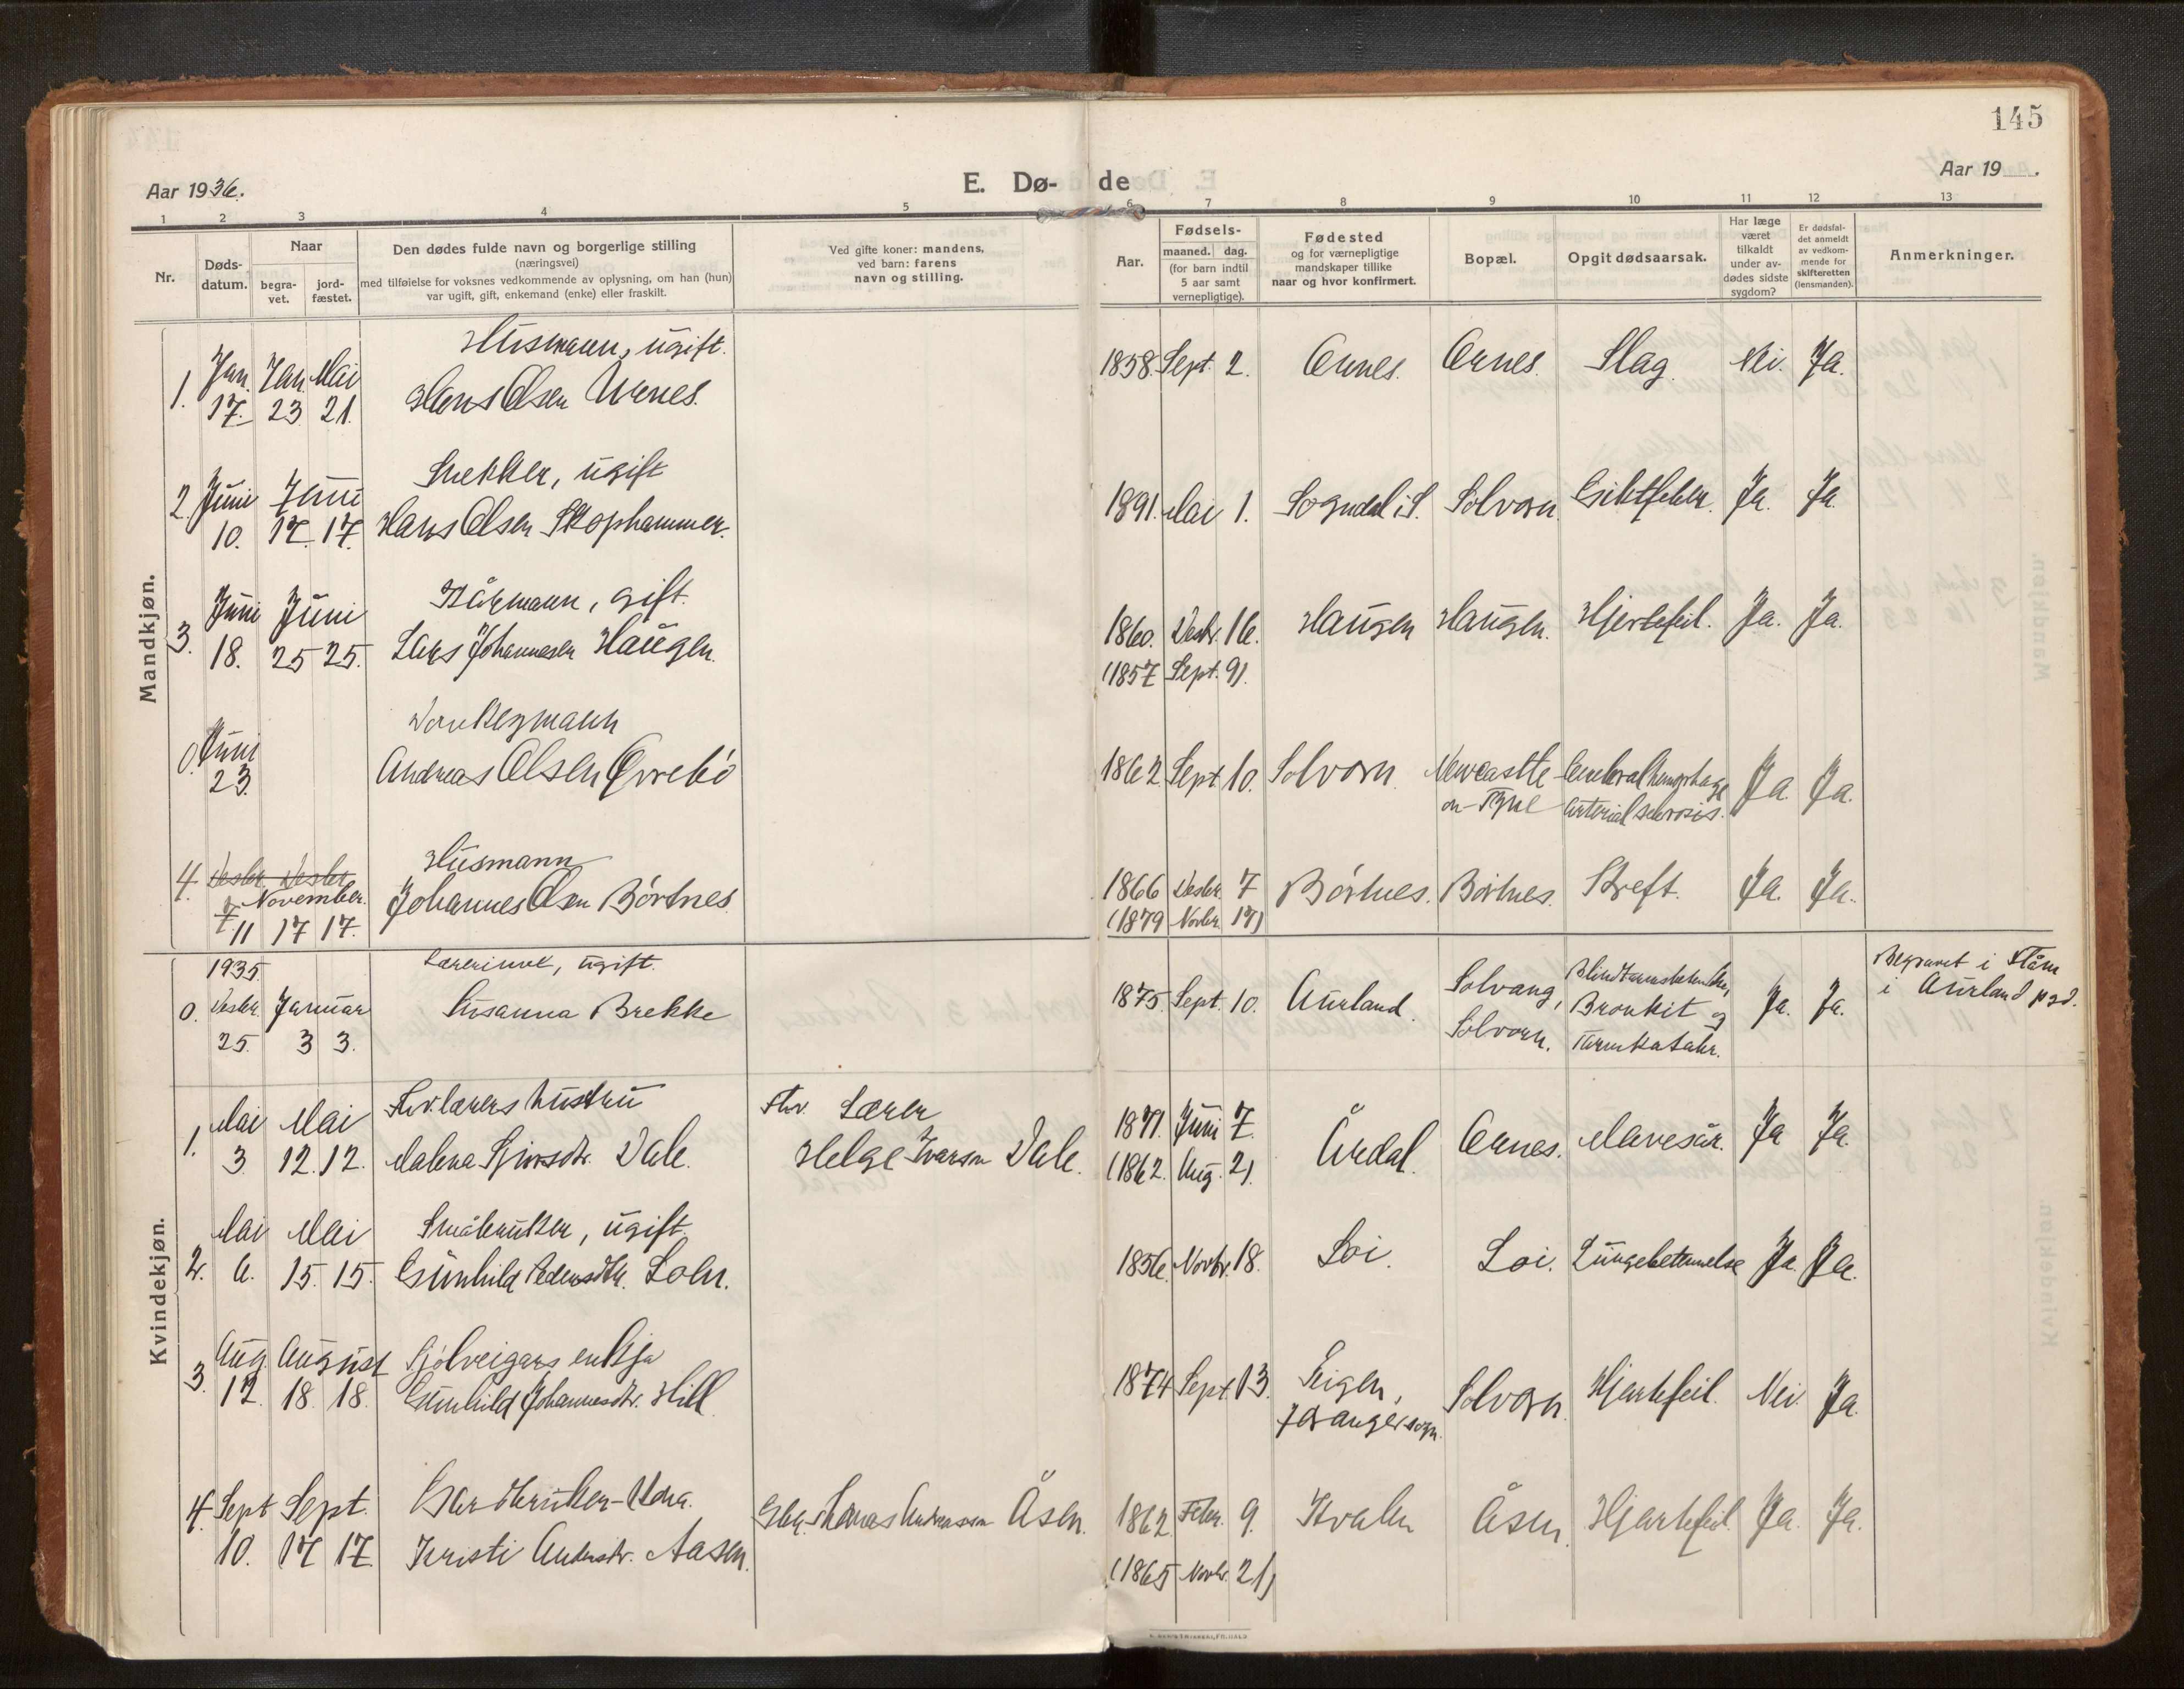 145
Aar 1936.
E. Dø- de
Aar 19 .
1 2 3 4 5 6 7 8 9 10 11 12 13
Nr.
Døds-
datum.
Naar
begra-
vet.
jord-
fæstet.
Den dødes fulde navn og borgerlige stilling
(næringsvei)
med tilføielse for voksnes vedkommende av oplysning, om han (hun)
var ugift, gift, enkemand (enke) eller fraskilt.
Ved gifte koner: mandens,
ved barn: farens
navn og stilling.
Aar.
Fødsels-
maaned. dag.
(for barn indtil
5 aar samt
vernepligtige).
Fødested
og for værnepligtige
mandskaper tillike
naar og hvor konfirmert.
Bopæl.
Opgit dødsaarsak.
Har læge
været
tilkaldt
under av-
dødes sidste
sygdom?
Er dødsfal-
det anmeldt
av vedkom-
mende for
skifteretten
(lensmanden).
Anmerkninger.
Mandkjøn.
Husmann, ugift.
1. Jan. Jan. Mai 1858. Sept. 2. Ornes. Ornes. Slag. Nei. Ja.
17. 23 21. Hans Olsen Urnes.
Snekker, ugift
2. Juni Juni 1891. Mai 1. Sogndal i S. Solvorn. Giktfeber. Ja. Ja.
10. 17. 17. Hans Olsen Skophammer.
Kårmann, gift.
3. Juni Juni 1860. Desbr. 16. Haugen Haugen. Hjertefeil. Ja. Ja.
18. 25 25. Lars Johannesen Haugen.
(1857 Sept. 9).
Donkeymann
0. Juni Andreas Olsen Ørrebö 1862 Sept. 10. Solvorn. Newcastle Cerebral hemorrhage Ja. Ja.
23. on-Tyne arterial sclerosis.
Husmann
4. Desbr. Desbr. 1866 Desbr. 7 Börtnes. Börtnes. Kreft. Ja. Ja.
November. Johannes Olsen Börtnes.
7. 11 17 17. (1879 Novbr. 17)
Kvindekjøn.
1935. Lærerinne, ugift.
0. Desbr. Januar Susanna Brekke 1875. Sept. 10. Aurland. Solvang, Bronkit og Ja. Ja. Begravet i Flåm
25. 3 3. Solvorn. Tarmkatahr. i Aurland pgd.
Fhv. lærers hustru fhv. Lærer
1. Mai Mai 1871. Juni 7. Årdal. Ornes. Mavesår. Ja Ja.
3. 12. 12. Malena Dale. Helge Ivarson Dale.
(1862. Aug. 2).
Småbruker, ugift.
2. Mai Mai 1856. Novbr. 18. Loi. Loi. Lungebetennelse Ja. Ja.
6. 15. 15. Gunhild Pedersdtr.
Sjölveigars enkja
3. Aug. August 1874 Sept. 13. Solvorn. Hjartefeil. Nei. Ja.
12. 18. 18. Gunhild Johannesdtr. Hill
Gardbruker-kona.
4. Sept Sept. Gbr. Thomas Åsen. 1862. Febr. 9. Kvalen Åsen. Hjartefeil. Ja. Ja.
10. 17 17. Kristi Andersdtr. Aasen.
(1865 Novbr. 21)